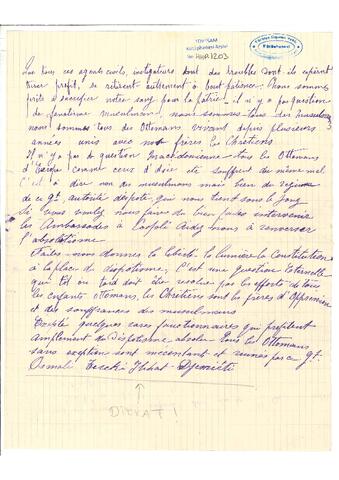 TÜSTAV
Kütüphanesi Arşivi
No
Que tous ces agents civils, instigateurs des troubles dont ils espèrent
tirer profit, se retirent autrement à bout patience. Nous sommes
prêts à sacrifier notre sang pour la patrie. il n'y a pas question
de fanatisme musulman, nous sommes tous des
nous sommes tous des Ottomans vivant depuis plusieurs
années unis avec nos frères les Chrétiens.
Il n'y a pas de question Macedonienne tous les Ottomans
d'Europe comme ceux d'Asie ont souffert du même mal
C'est à dire non des musulmans mais bien du regime
de ce gt. autorité despote, qui nous tient sous le joug
Si vous voulez nous faire du bien faites intervenir
les Ambassades à Aidez nous à renverser
l'absolutisme
Faites nous donner la liberté la lumière la Constitution
à la place du despotisme, C'est une question éternelle
qui tôt ou tard doit être resolue par les efforts de tous
les enfants ottomans, les Chrétiens sont les frères d'
et des souffrances des musulmans
Excepté quelques rares fonctionnaires qui profitent
amplement du despotisme absolu tous les Ottomans
sans exception sont mecontant et ruinés par ce gt.
Osmanli Ittihat - Djemiéti
DİKKAT!